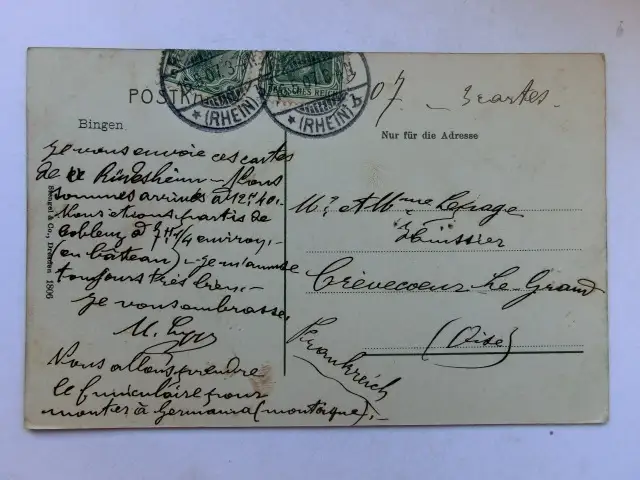 POSTK
07. - 3 cartes -
(RHEIN)
(RHEIN)
Bingen
Nur für die Adresse
Je vous envoie ces cartes
de Rüdesheim - Nous
sommes arrivés à 12H 40.-
Nous étions partis de
Coblenz à 7H 1/4 environ,-
(en bâteau) - je m'amuse
toujours très bien.-
Je vous embrasse.
Nous allons prendre
le funiculaire pour
monter à Germania (montagne).-
Mr et Mme Lesage
Huissier
Crèvecoeur Le Grand
(Oise)
Frankreich
Stengel & Co., Dresden 1806